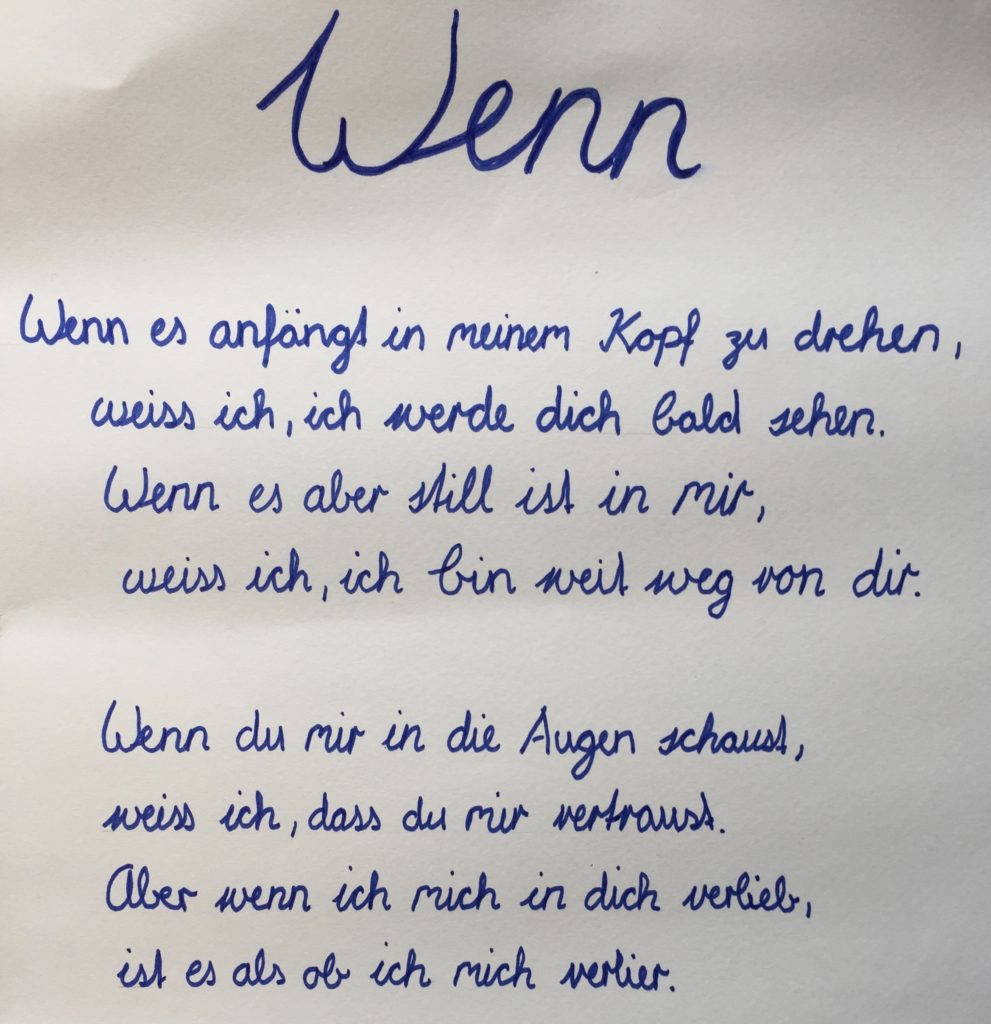 Wenn
Wenn es anfängt in meinem Kopf zu drehen,
weiss ich, ich werde dich bald sehen.
Wenn es aber still ist in mir,
weiss ich, ich bin weit weg von dir.
Wenn du mir in die Augen schaust,
weiss ich, dass du mir vertraust.
Aber wenn ich mich in dich verlieb,
ist es als ob ich mich verlier.